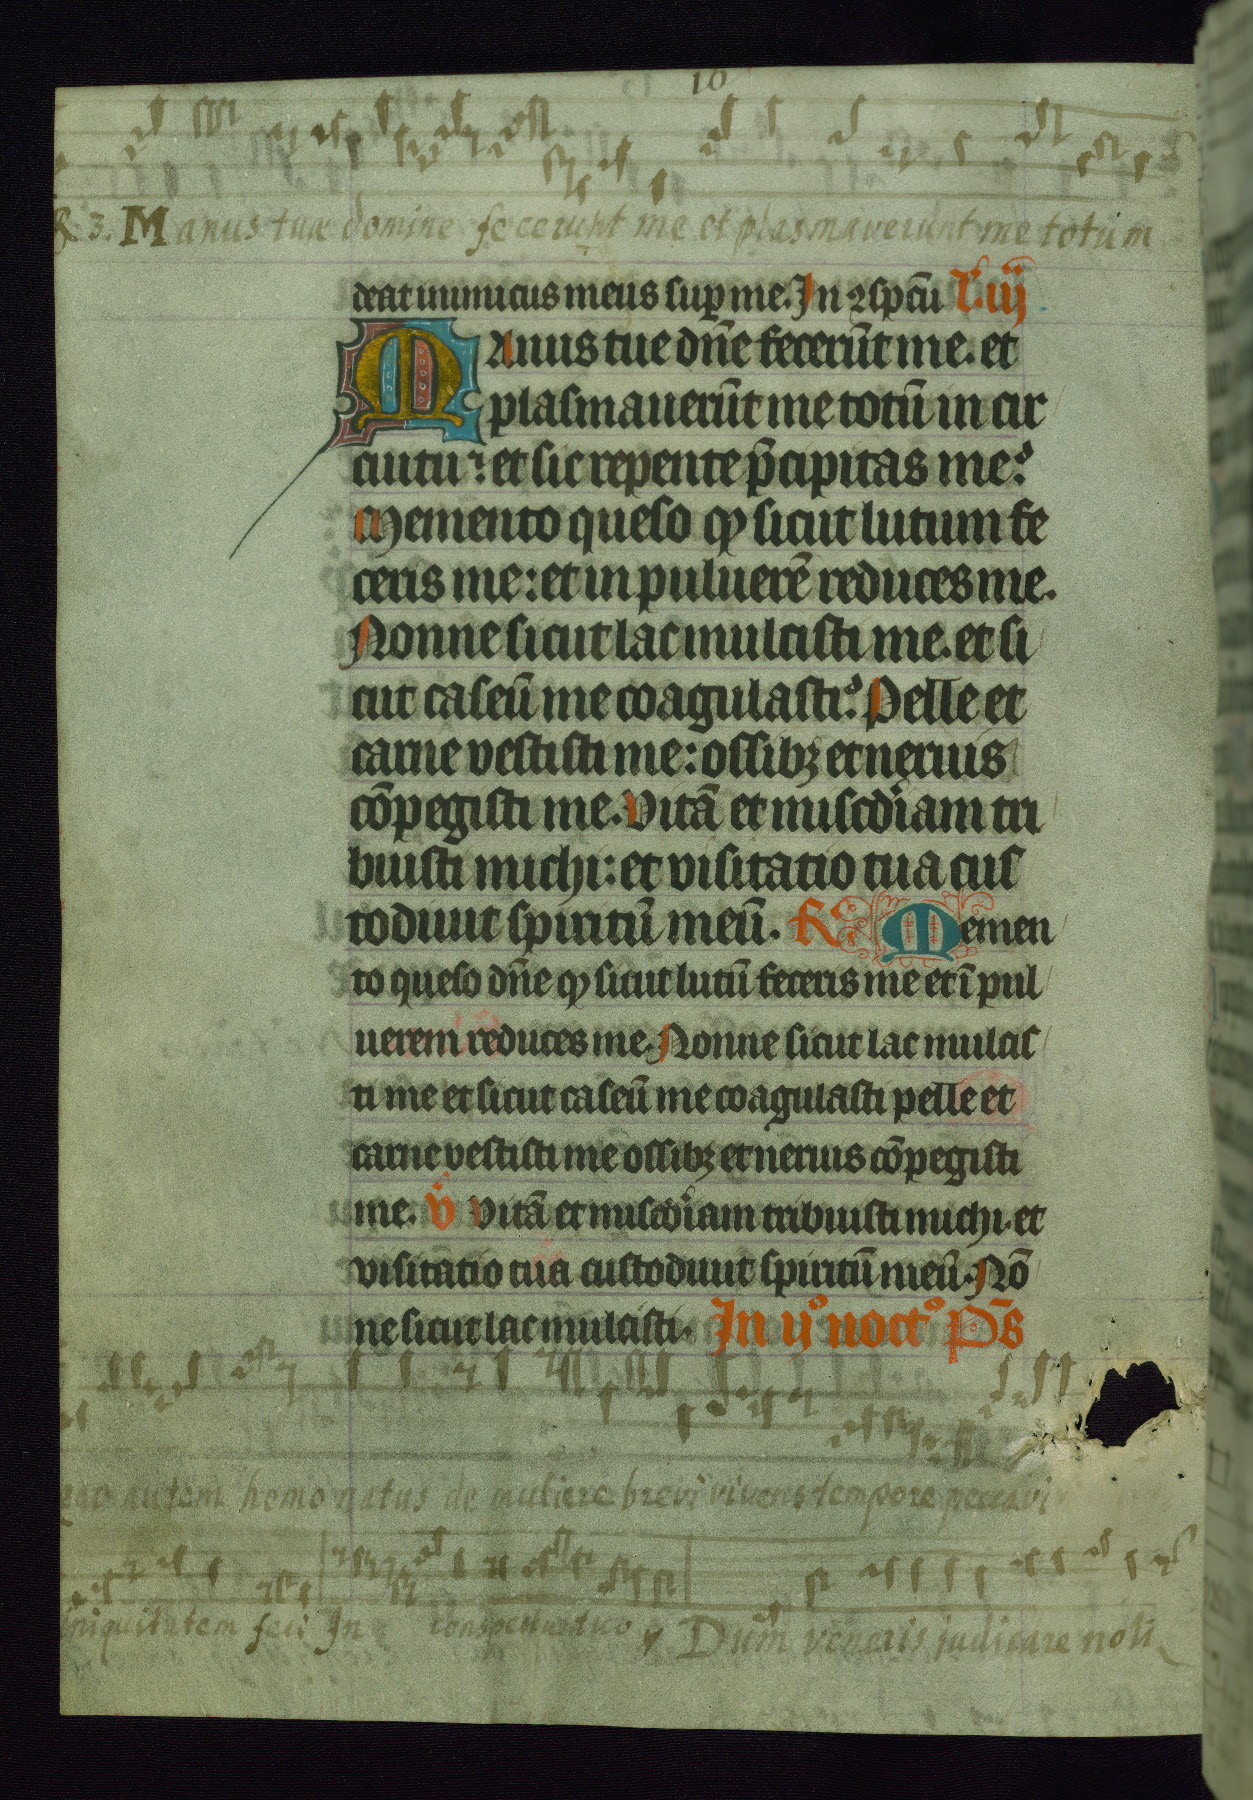 10
℟ 3. Manus tuæ domine fecerunt me et plasmaverunt me totum
deat inimicus meus sup̱ me. In ꝯspc̄tu L. iij
Anus tue dn̄e fecerūt me. et
plasmauerūt me totū in cir
cuitu: et sic repente p̄cipitas me?
Memento queso ꝙ sicut lutum fe
ceris me: et in puluerē reduces me.
Nonne sicut lac mulcisti me. et si
cut caseū me coagulasti? Pelle et
carne vestisti me: ossibꝫ et neruis
cōpegisti me. Vitā et miscdiam tri
buisti michi: et visitatio tua cus
todiuit spiritū meū. R̷ Memen
to queso dn̄e ꝙ sicut lutū feceris me et ī pul
uerem reduces me. Nonne sicut lac mulcis
ti me et sicut caseū me coagulasti pelle et
carne vestisti me ossibꝫ et neruis cōpegisti
me. V̄ Vitā et miscdiam tribuisti michi. et
visitatio tua custodiuit spiritū meū. Nō
ne sicut lac mulcisti. In ijº noctº Ps̄
ego autem homo natus de muliere brevi vivens tempore peccavi
iniquitatem feci In conspectu tuo ℣ Dum veneris judicare noli